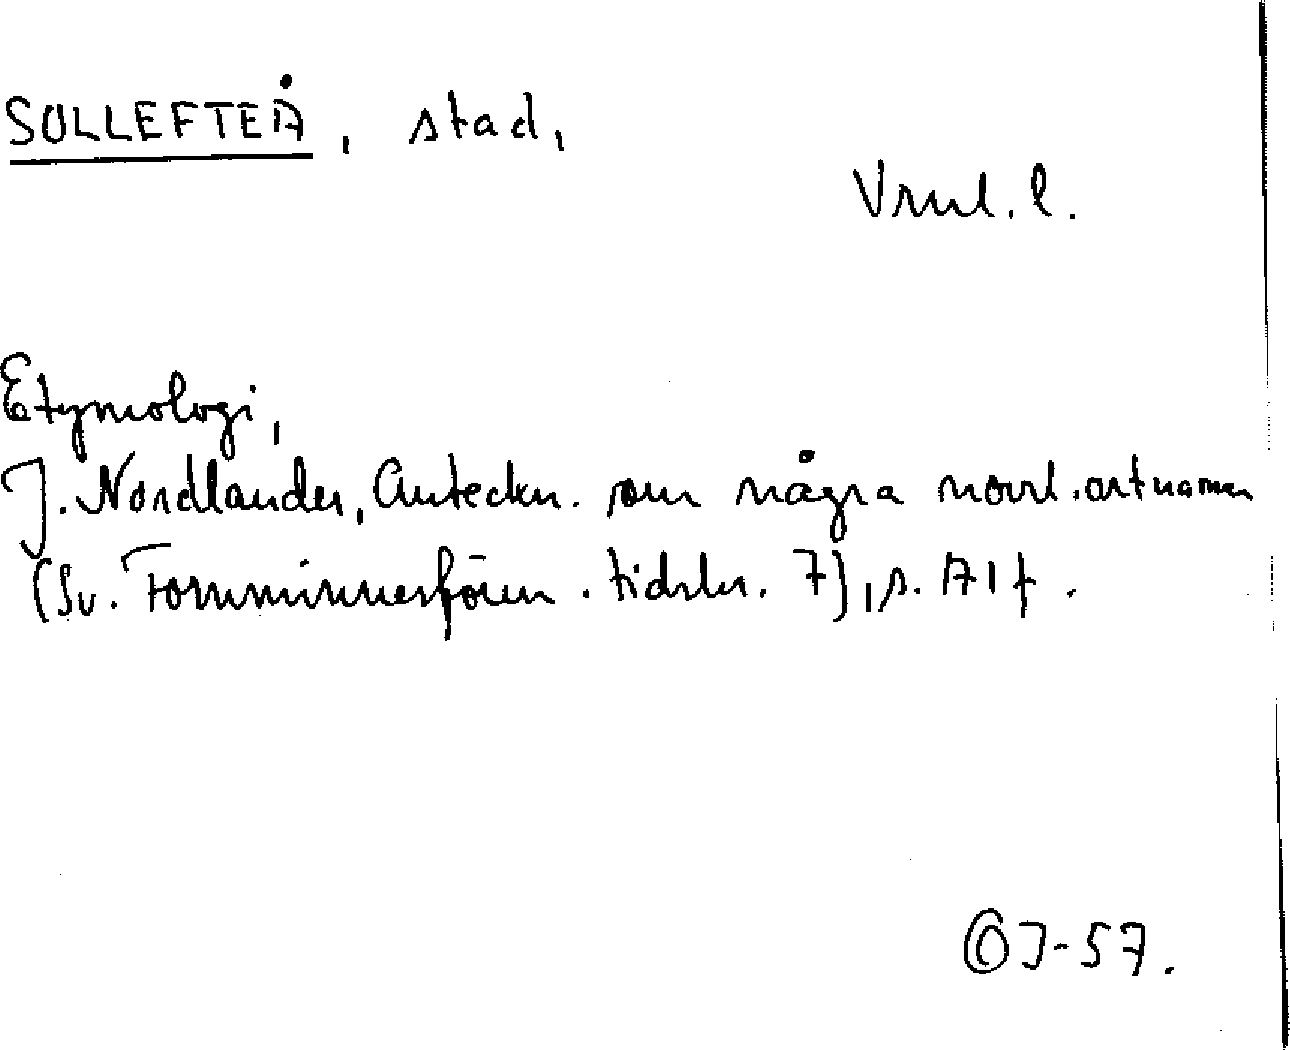 SOLLEFTEÅ, stad,
Vrnl. l.
Etymologi,
J. Nordlander, Anteckn. om några norrl. ortnamn
(Sv. Fornminnesfören. tidskr. 7), s.
J-57.